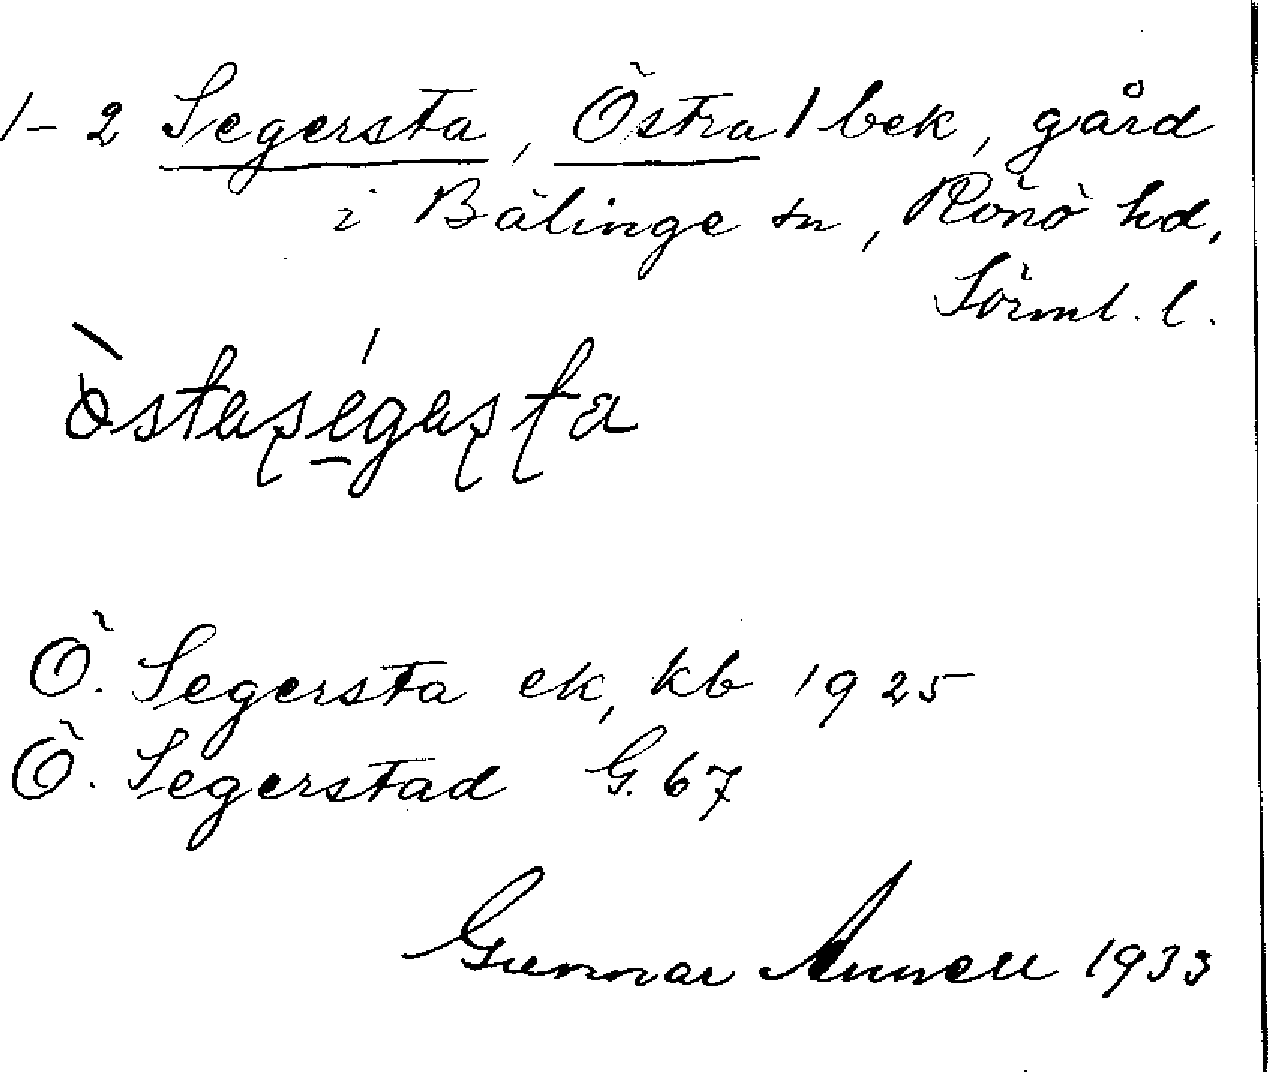 1-2 Segersta, Östra 1 bek, gård
i Bälinge sn, Rönö hd,
Sörml. l.
òstaségasta
Ö. Segersta ek, kb 1925
Ö. Segerstad G. 67
Gunnar Annell 1933